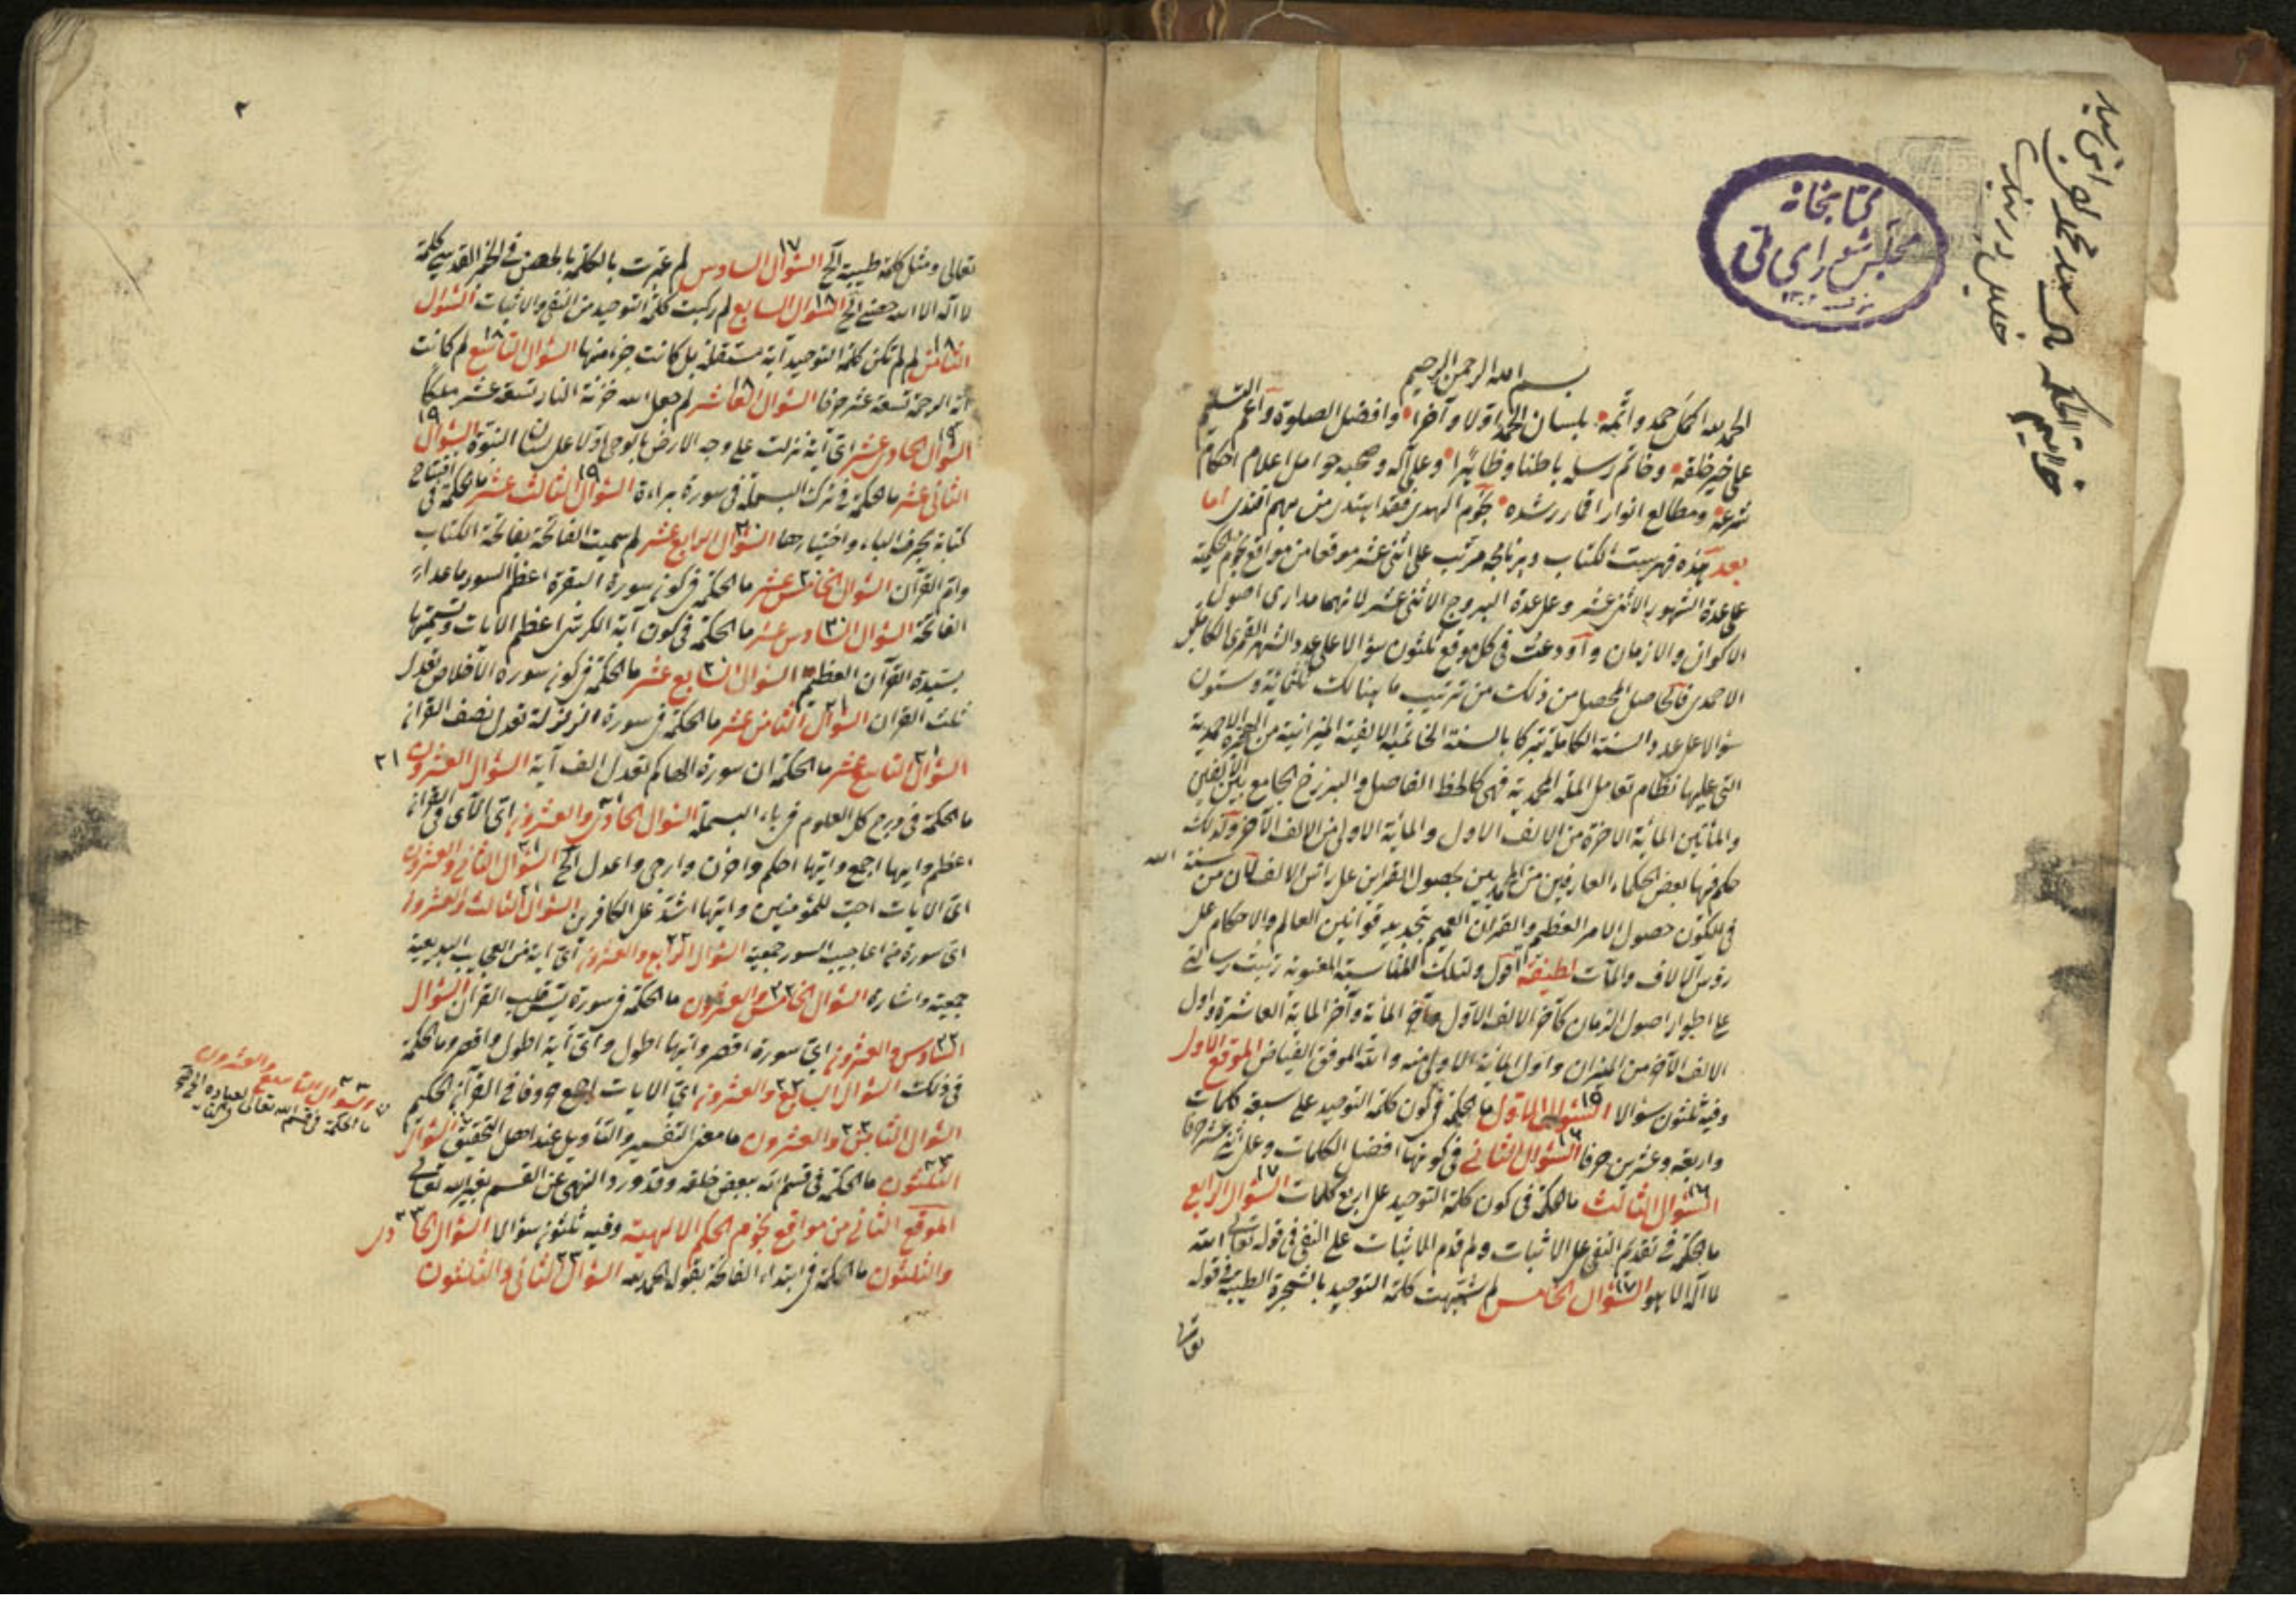 خواتيم الحكم
كتابخانه
مجلس شوراى ملى
بسم الله الرحمن الرحيم
الحمد لله اكمل حمد واتمه بلسان الحمد اولا وآخرا وافضل الصلوة واعم التسليم
على خير خلقه وخاتم رسله باطنا وظاهرا وعلى آله وصحبه حوامل اعلام احكام
شرعه ومطالع انوار اقمار رشده نجوم الهدى فقد اهتدى من بهم اقتدى اما
بعد هذه فهرست الكتاب وبرنامجه مرتب على اثنى عشر موقعا من مواقع نجوم الحكمة
على عدة الشهور الاثنى عشر وعلى عدة البروج الاثنى عشر لانهما مدارى اصول
الاكوان والازمان واودعت فى كل موقع ثلثون سؤالا على عدد الشهر القمرى الكامل
الاحمدى فالحاصل المحصل من ذلك من ترتيب ما هنالك ثلثمائة وستون
سؤالا على عدد السنة الكاملة تبركا بالسنة الخاتمية الالفية الميزانية من الهجرة الاحمدية
التى عليها نظام تعامل الملة المحمدية فهى كالخط الفاصل والبرزخ الجامع بين الالفين
والمأتين المائة الاخرة من الالف الاول والمائة الاولى من الالف الآخر وكذلك
حكم فيها بعض الحكماء العارفين من المحمديين بحصول القرانين على رأس الالف كان من سنة الله
فى الكون حصول الامر العظيم والقران العميم بتجديد قوانين العالم والاحكام على
رؤس الآلاف والمآت لطيفة اقول ولتلك المناسبة المعنوية رتبت رسالتى
على اطوار اصول الزمان كآخر الالف الاول وآخر المائة وآخر المائة العاشرة واول
الالف الآخر من الميزان واول المائة الاولى منه والله الموفق الفياض الموقع الاول
وفيه ثلثون سؤالا السؤال الاول ما الحكمة فى كون كلمة التوحيد على سبعة كلمات
واربعة وعشرين حرفا السؤال الثانى فى كونها افضل الكلمات وعلى اثنى عشر حرفا
السؤال الثالث ما الحكمة فى كون كلمة التوحيد على اربع كلمات السؤال الرابع
ما الحكمة فى تقديم النفى على الاثبات ولم قدم الاثبات على النفى فى قوله تعالى الله
لا اله الا هو السؤال الخامس لم شبهت كلمة التوحيد بالشجرة الطيبة فى قوله
تعالى
٢
تعالى ومثل كلمة طيبة الخ السؤال السادس لم عبرت بالكلمة بالحصن فى الخبر القدسى كلمة
لا اله الا الله حصنى الخ السؤال السابع لم ركبت كلمة التوحيد من النفى والاثبات السؤال
الثامن لم لم تكن كلمة التوحيد آية مستقلة بل كانت جزء منها السؤال التاسع لم كانت
آية الرحمة تسعة عشر حرفا السؤال العاشر لم جعل الله خزنة النار تسعة عشر ملكا
السؤال الحادى عشر اى آية نزلت على وجه الارض بالوحى اولا على لسان النبوة السؤال
الثانى عشر ما الحكمة فى ترك البسملة فى سورة براءة السؤال الثالث عشر ما الحكمة فى افتتاح
كتابه بحرف الباء واختيارها السؤال الرابع عشر لم سميت الفاتحة بفاتحة الكتاب
وام القرآن السؤال الخامس عشر ما الحكمة فى كون سورة البقرة اعظم السور ما عدا
الفاتحة السؤال السادس عشر ما الحكمة فى كون آية الكرسى اعظم الايات وتسميتها
بسيدة القرآن العظيم السؤال السابع عشر ما الحكمة فى كون سورة الاخلاص تعدل
ثلث القرآن السؤال الثامن عشر ما الحكمة فى سورة الزلزلة تعدل نصف القرآن
السؤال التاسع عشر ما الحكمة ان سورة الهاكم تعدل الف آية السؤال العشرون ٢١
ما الحكمة فى درج كل العلوم فى باء البسملة السؤال الحادى والعشرون اى الآى فى القرآن
اعظم وايها اجمع وايها احكم واخوف وارجى واعدل الخ السؤال الثانى والعشرون
اى الايات احب للمؤمنين وايها اشد على الكافرين السؤال الثالث والعشرون
اى سورة من اعاجيب السور جمعية السؤال الرابع والعشرون اى آية من العجايب البديعية
جمعية واشارة السؤال الخامس والعشرون ما الحكمة فى سورة يس قلب القرآن السؤال
السادس والعشرون اى سورة اقصر وايها اطول واى آية اطول واقصر وما الحكمة
فى ذلك السؤال السابع والعشرون اى الايات اجمع حروفا فى القرآن الحكيم
السؤال الثامن والعشرون ما معنى التفسير والتأويل عند اهل التحقيق السؤال
الثلثون ما الحكمة فى قسم الله ببعض خلقه وقد ورد النهى عن القسم بغير الله تعالى
الموقع الثانى من مواقع نجوم الحكم الالهية وفيه ثلثون سؤالا السؤال الحادى
والثلثون ما الحكمة فى ابتداء الفاتحة بقوله الحمد لله السؤال الثانى والثلثون
السؤال التاسع والعشرون
ما الحكمة فى قسم الله تعالى لعباده